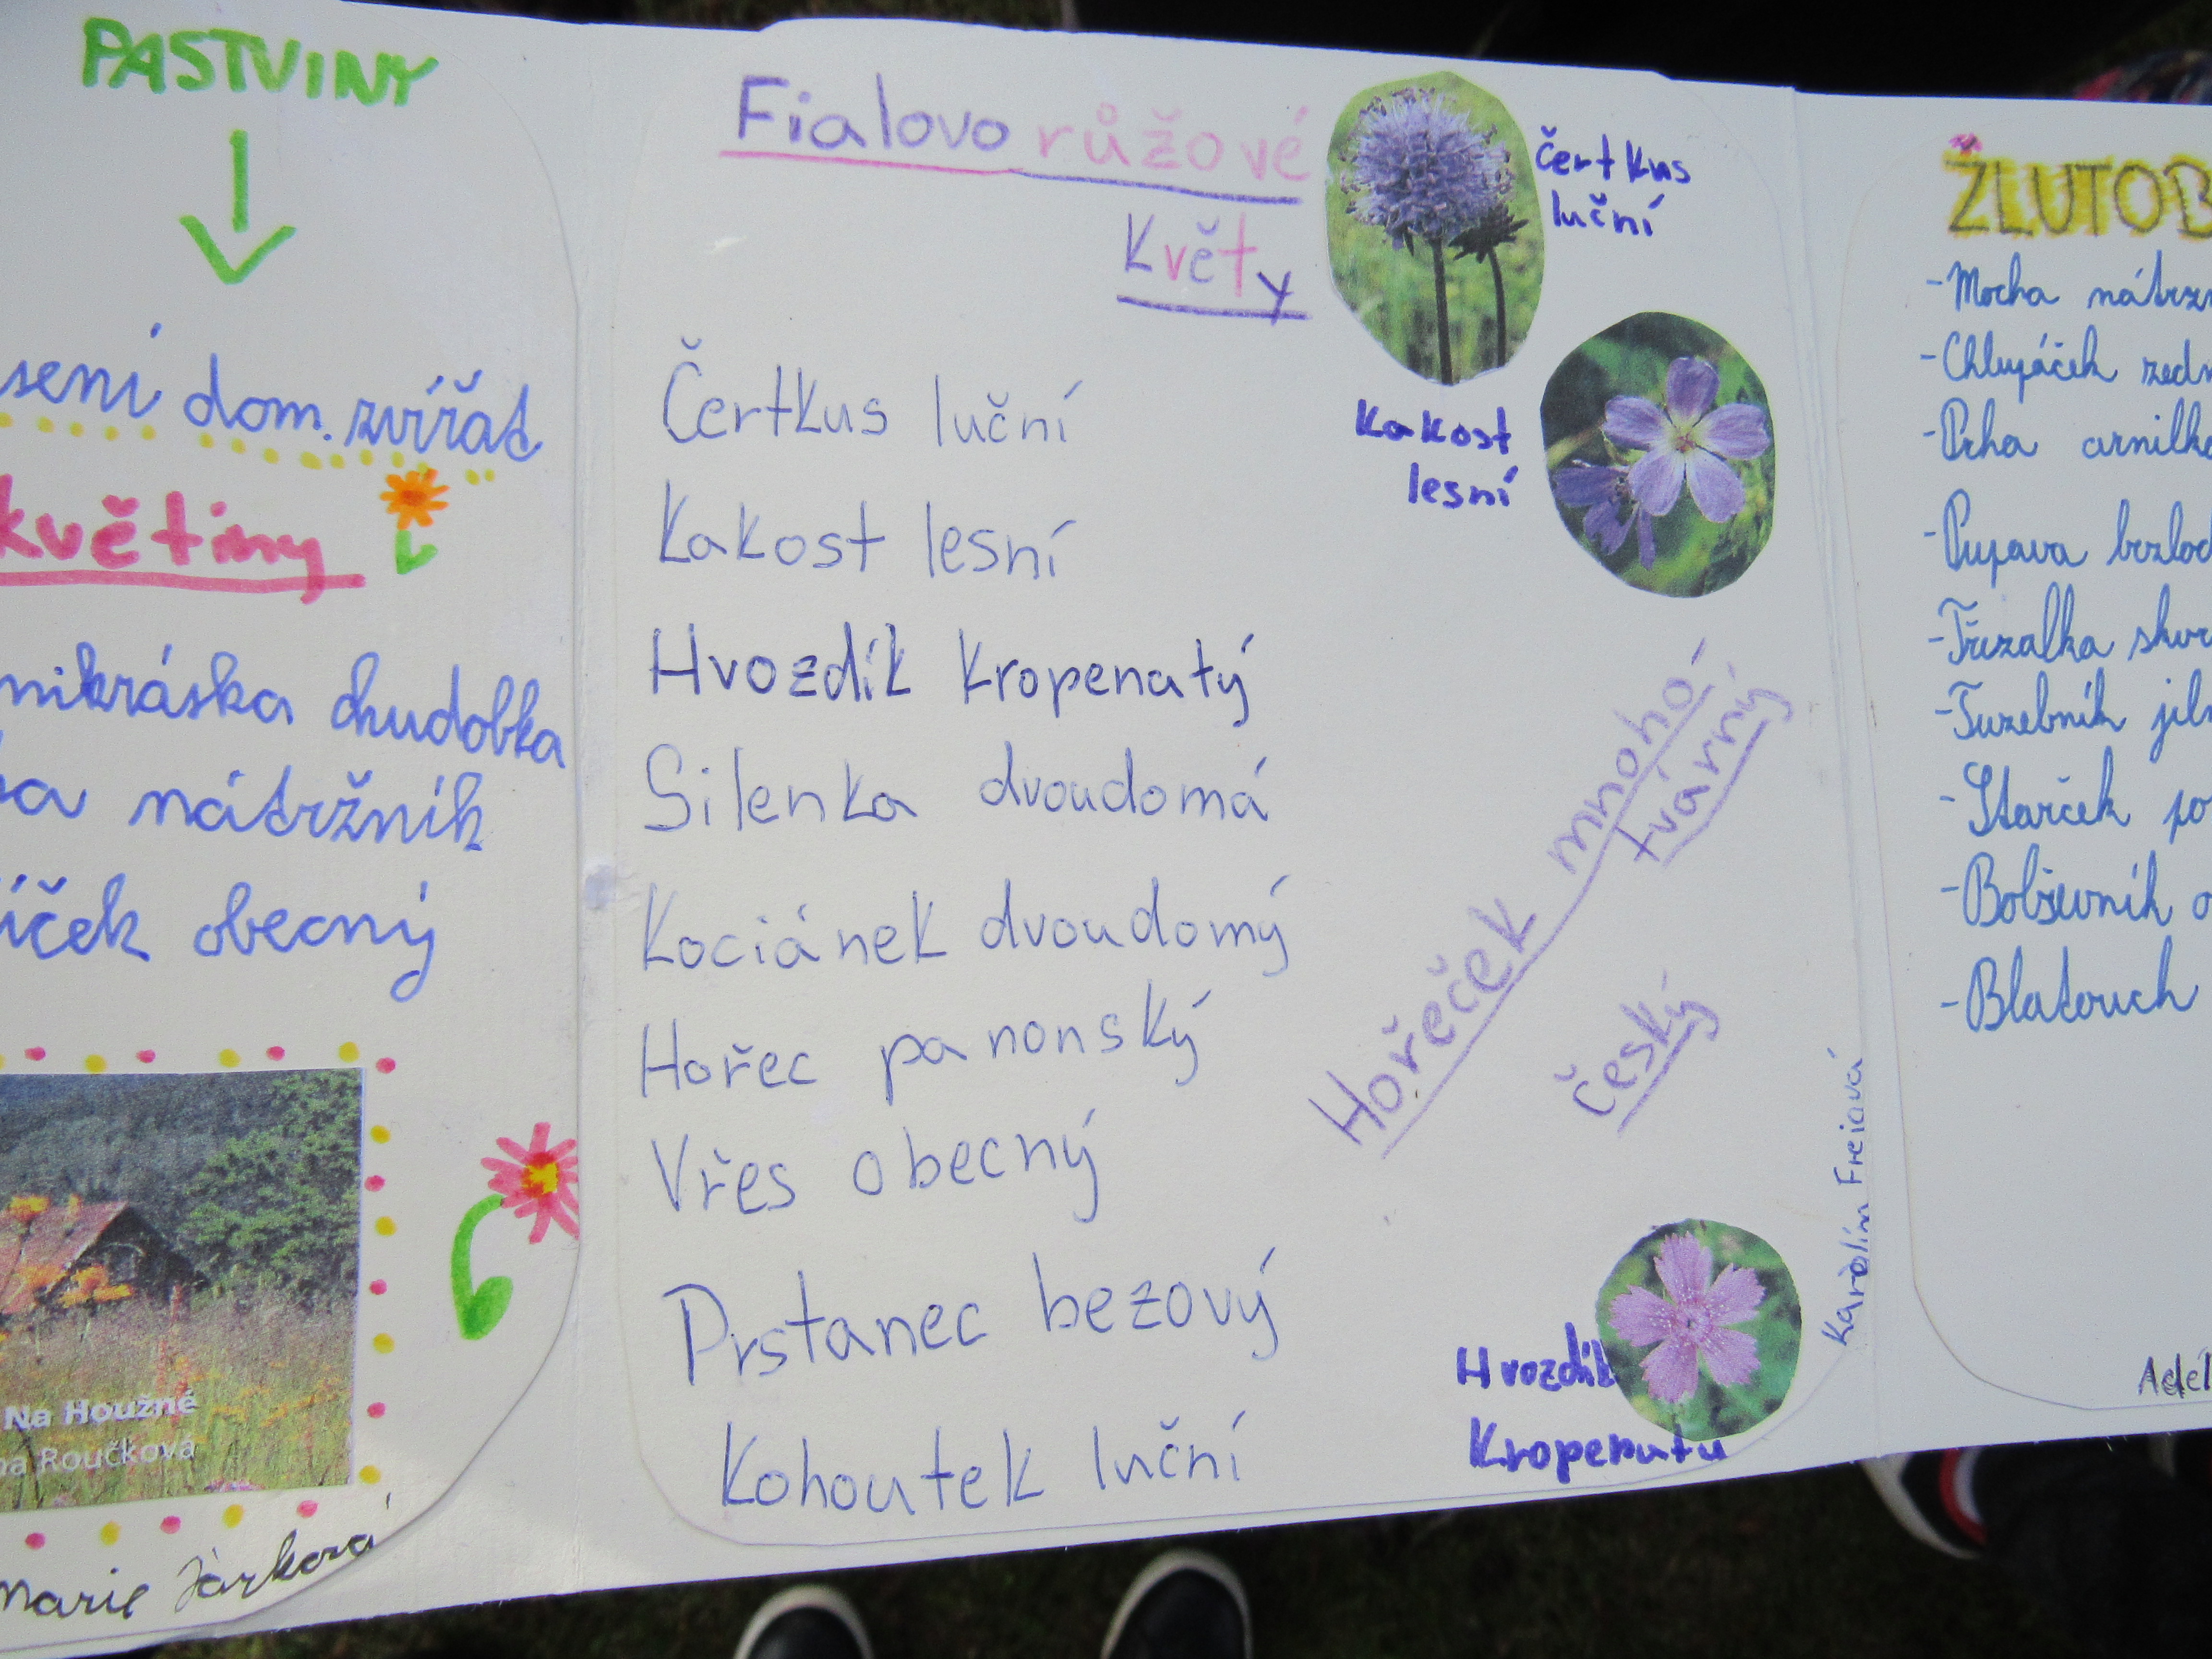 PASTVINY
sení dom. zvířat
květiny
mikráska chudobka
nátržník
íček obecný
Na Houžné
na Roučková
Marie
Fialovo růžové
Květy
Čertkus luční
Kakost lesní
Hvozdík Kropenatý
Silenka dvoudomá
Kociánek dvoudomý
Hořec panonský
Vřes obecný
Prstanec bezový
Kohoutek luční
čertkus
luční
Kakost
lesní
Hořeček mnoho-
tvárný
český
Hvozdík
Karolín Freiová
ŽLUTOB
-Mocha nátrzn
-Chlupáček zedn
-Prha arnilka
-Pupava bezlod
-Třezalka skvr
-Tuzebník jil
-Starček po
-Bolševník o
-Blatouch
Adél